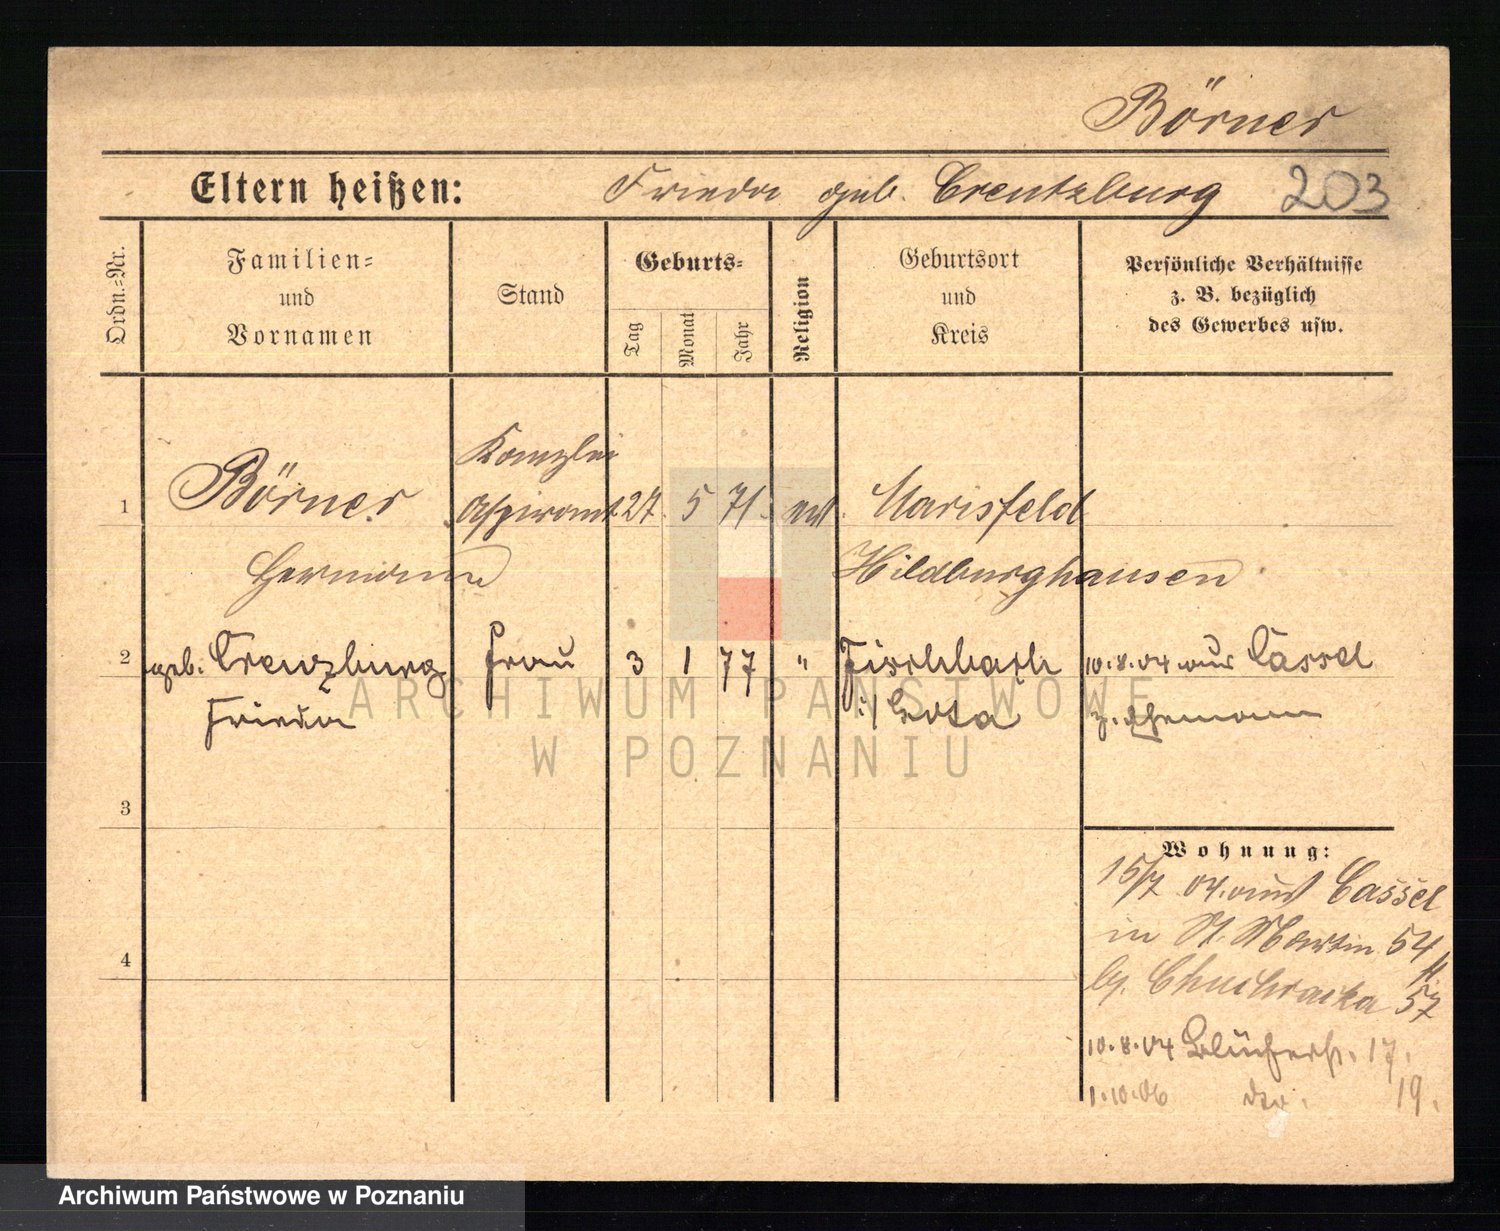 Börner
Eltern heißen: Frieda geb. Creutzburg 203
Ordn.=Nr.
Familien=
und
Vornamen
Stand
Geburts=
Tag
Monat
Jahr
Religion
Geburtsort
und
Kreis
Persönliche Verhältnisse
z. B. bezüglich
des Gewerbes usw.
Kanzlei
1 Börner Aspirant 27. 5 71. ev. Marisfeld
Hermann Hildburghausen
2 geb. Creuzburg Frau 3 1 77 " Fischbach 10.8.04 aus Cassel
Frieda i/ Gota z. Ehemann
3
Wohnung:
15/7 04. aus Cassel
in St. Martin 54
4
bg. 57
10.8.04 Blücherstr. 17.
1.10.06 19.
ARCHIWUM PAŃSTWOWE
W POZNANIU
Archiwum Państwowe w Poznaniu